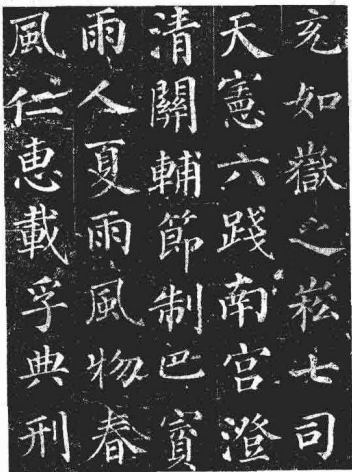 兖如嶽之崧七司
天憲六踐南宫澄
清關輔節制巴賨
雨人夏雨風物春
風仁恵載孚典刑